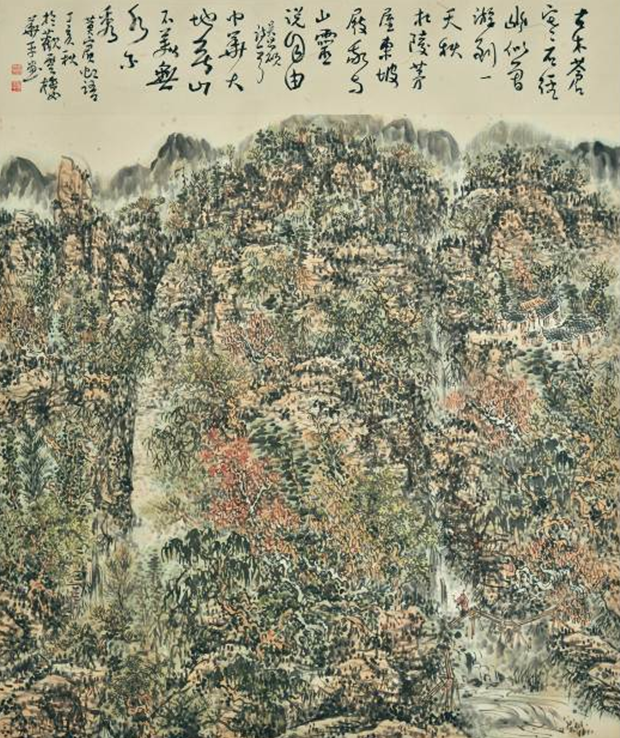 古木蒼
寒石徑
幽似曾
游到一
天秋
杜陵茅
屋東坡
屐我與
山靈
說自由
吳昌碩
中華大
地無山
不美無
水不
秀
黃賓虹語
丁亥秋
於觀雲樓